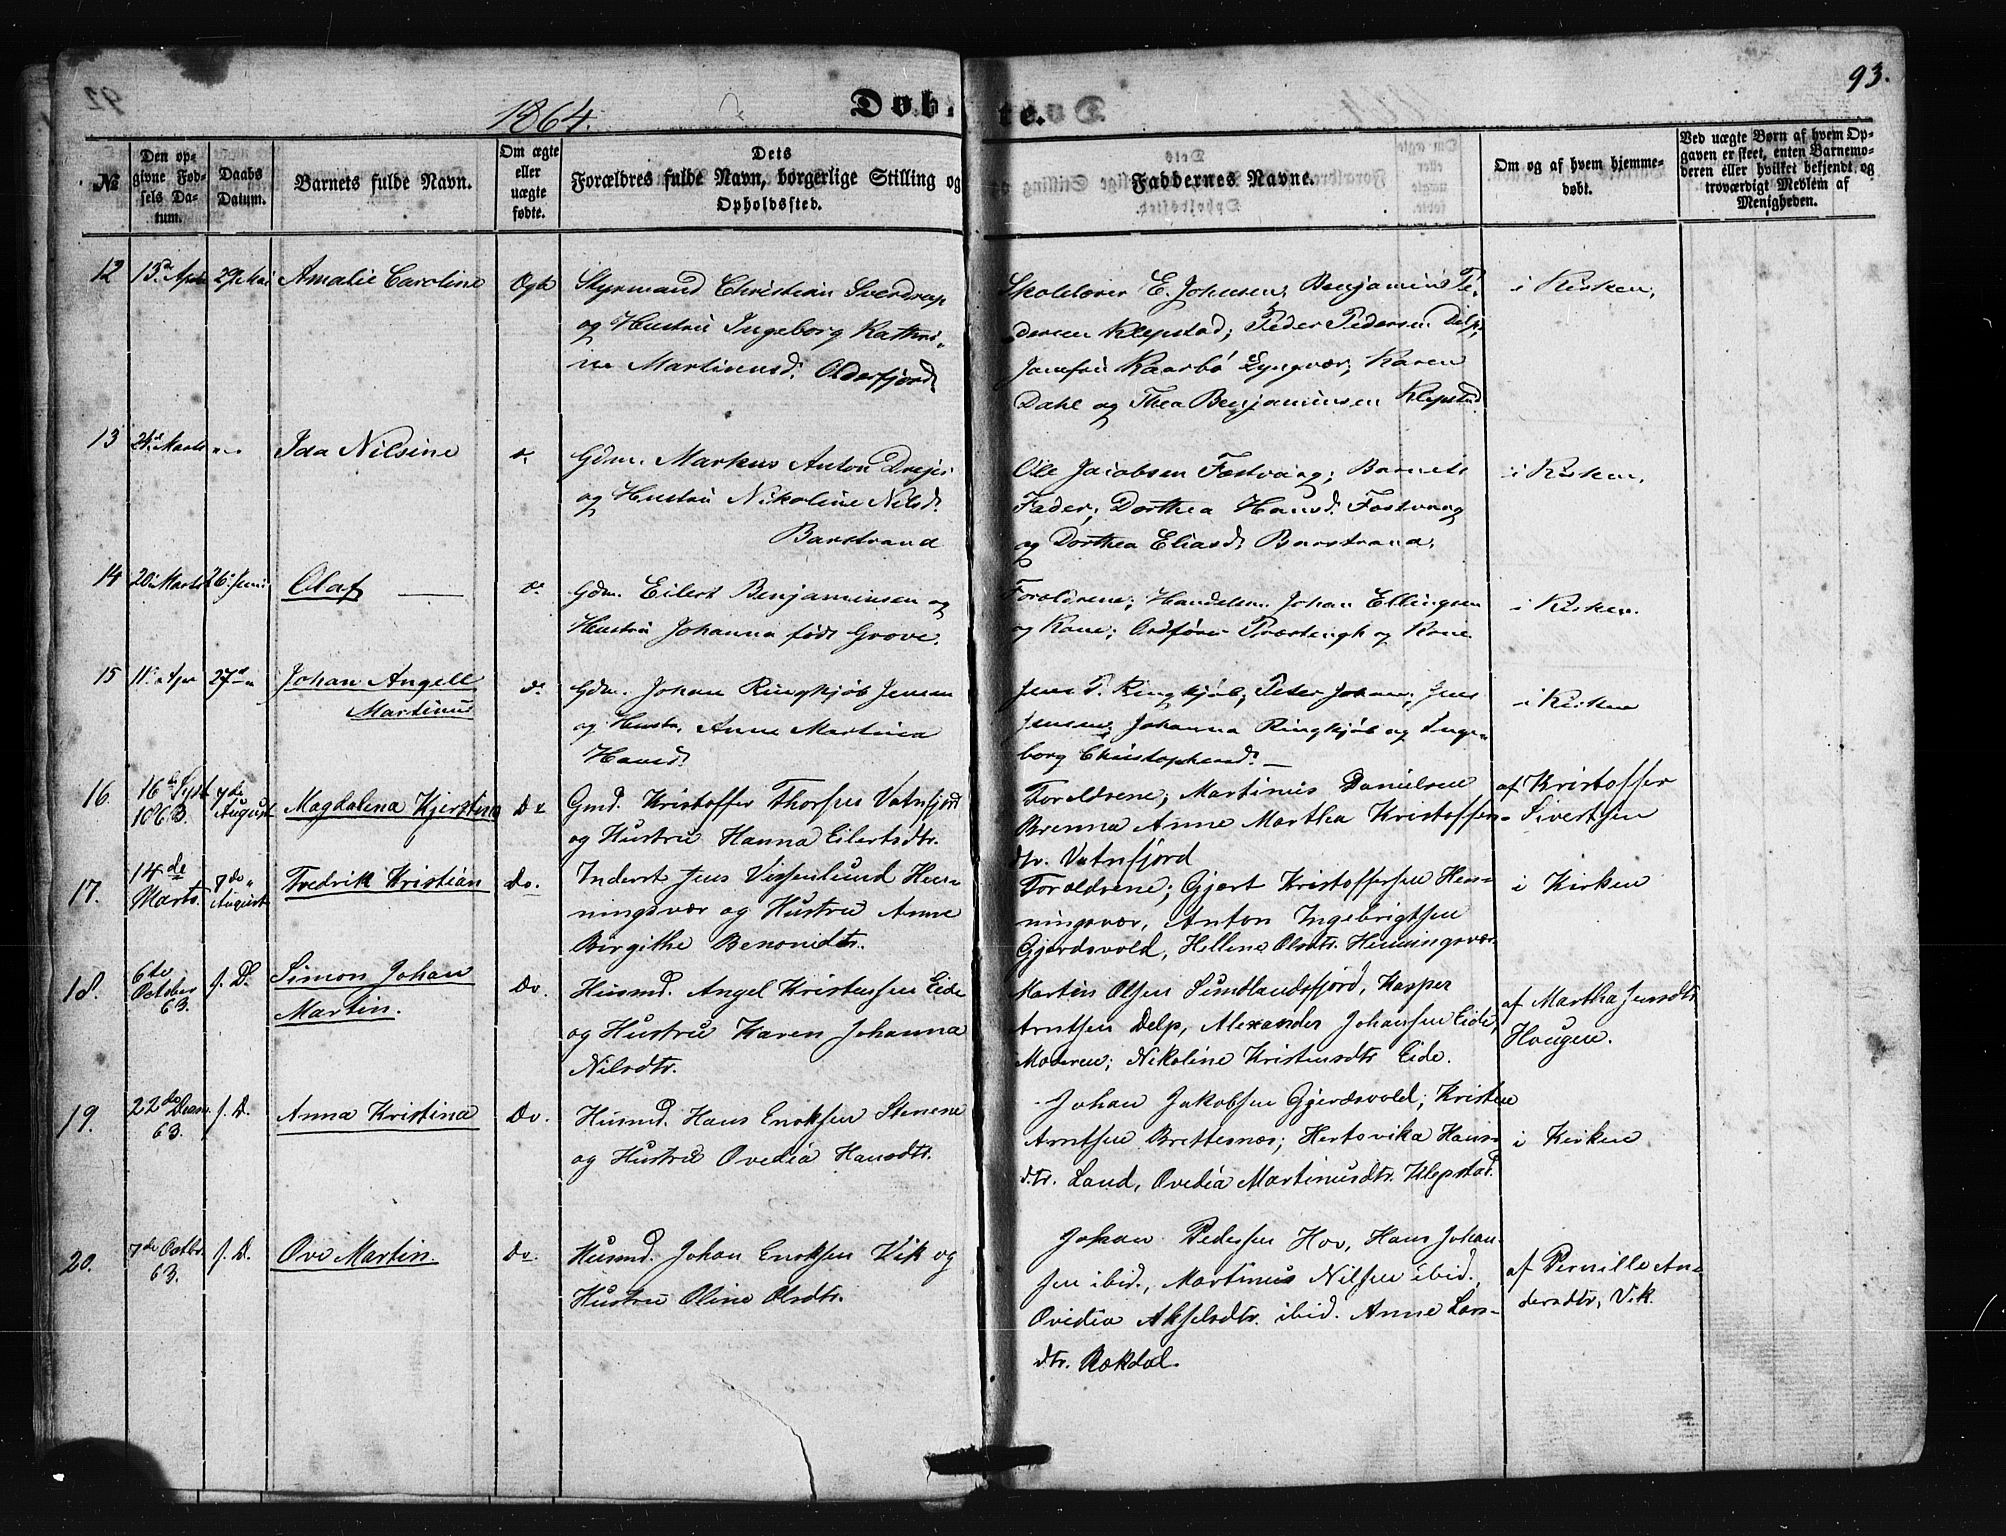 93.
1864.
Døb-te.
№
Den opgivne Fødsels Datum.
Daabs Datum.
Barnets fulde Navn.
Om ægte eller uægte fødte.
Dets Forældres fulde Navn, borgerlige Stilling og Opholdssted.
Faddernes Navne.
Om og af hvem hjemmedøbt.
Ved uægte Børn af hvem Opgaven er skeet, enten Barnemoderen eller hvilket bekjendt og troværdigt Medlem af Menigheden.
12 29 Mai Amalie Caroline Ægte
Styrmand Christian Sverdrup
og Hustru Ingeborg Kathri-
ne Martinusd. Olderfjord
Skolelærer E. Johnsen, Benjamin Pe-
dersen Klepstad; Peder Pedersen Delp;
Jomfru Kaarbø Lyngvær; Karen
Dahl og Thea Benjaminsen Klepstad
i Kirken,
13 Marts Ida Nilsine
Gdm. Markus Anton
og Hustru Nikoline Nilsd.
Barstrand
Ole Jacobsen Festvaag; Barnets
Fader; Dorthea Hansd. Festvaag
og Dorthea Eliasd. Barstrand.
i Kirken,
14 20 Marts 26 Juni Olaf
Gdm. Eilert Benjaminsen og
Hustru Johanna født Grove.
Forældrene; Handelsm. Johan Ellingsen
og Kone; Ordfører og Kone
i Kirken.
15 11 Apr 27 Johan Angell
Martinus
Gdm. Johan Ringkjøb Jensen
og Hustr. Anne Martina
Hansd.
Jens P. Ringkjøb; Peter Johans; Jens
Jensen; Johanna Ringkjøb og Inge-
borg Christophersd.
i Kirken
16. 16de 1863. 7de August Magdalena Kjerstina Do
Gmd. Kristoffer Thorsen Vatnfjord
og Hustru Hanna Eilertsdtr.
Forældrene; Martinus Danielsen
Brenna Anne Martha Kristoffers-
dtr. Vatnfjord
af Kristoffer
Sivertsen
17. 14de Marts. 7de August Fredrik Kristian Do.
Inderst Jens Vissenlund Hen-
ningsvær og Hustru Anne
Birgithe Benonidtr.
Forældrene; Gjert Kristoffersen Hen-
ningsvær, Anton Ingebrigtsen
Gjerdsvold, Hellena Olsdtr. Henningsvær
i Kirken
18. 6te October 63. s. D. Simon Johan
Martin.
Do.
Husmd. Angel Kristensen Eide
og Hustru Karen Johanna
Nilsdtr.
Martin Olsen Sundlandsfjord, Kasper
Arntsen Delp, Alexander Johansen Eide,
Moderen; Nikoline Kristensdtr Eide.
af Martha Jensdtr.
Hougen.
19. 22de Decem. 63. s. D. Anna Kristina Do.
Husmd. Hans Enoksen Stenene
og Hustru Ovedia Hansdtr.
Johan Jakobsen Gjerdsvold; Kristen
Arntsen Brettesnæs; Hertsvika Hans-
dtr. Laud, Ovedia Martinusdtr. Klepstad.
i Kirken
20. 7de Octbr. 63. s. D. Ove Martin. Do.
Husmd. Johan Enoksen Vik og
Hustru Oline Olsdtr.
Johan Pedersen Hov, Hans Johan-
sen ibid., Martinus Nilsen ibid.
Ovedia Akselsdtr. ibid. Anne Lars-
dtr. Rekdal.
af Pernille An-
dersdtr, Vik.